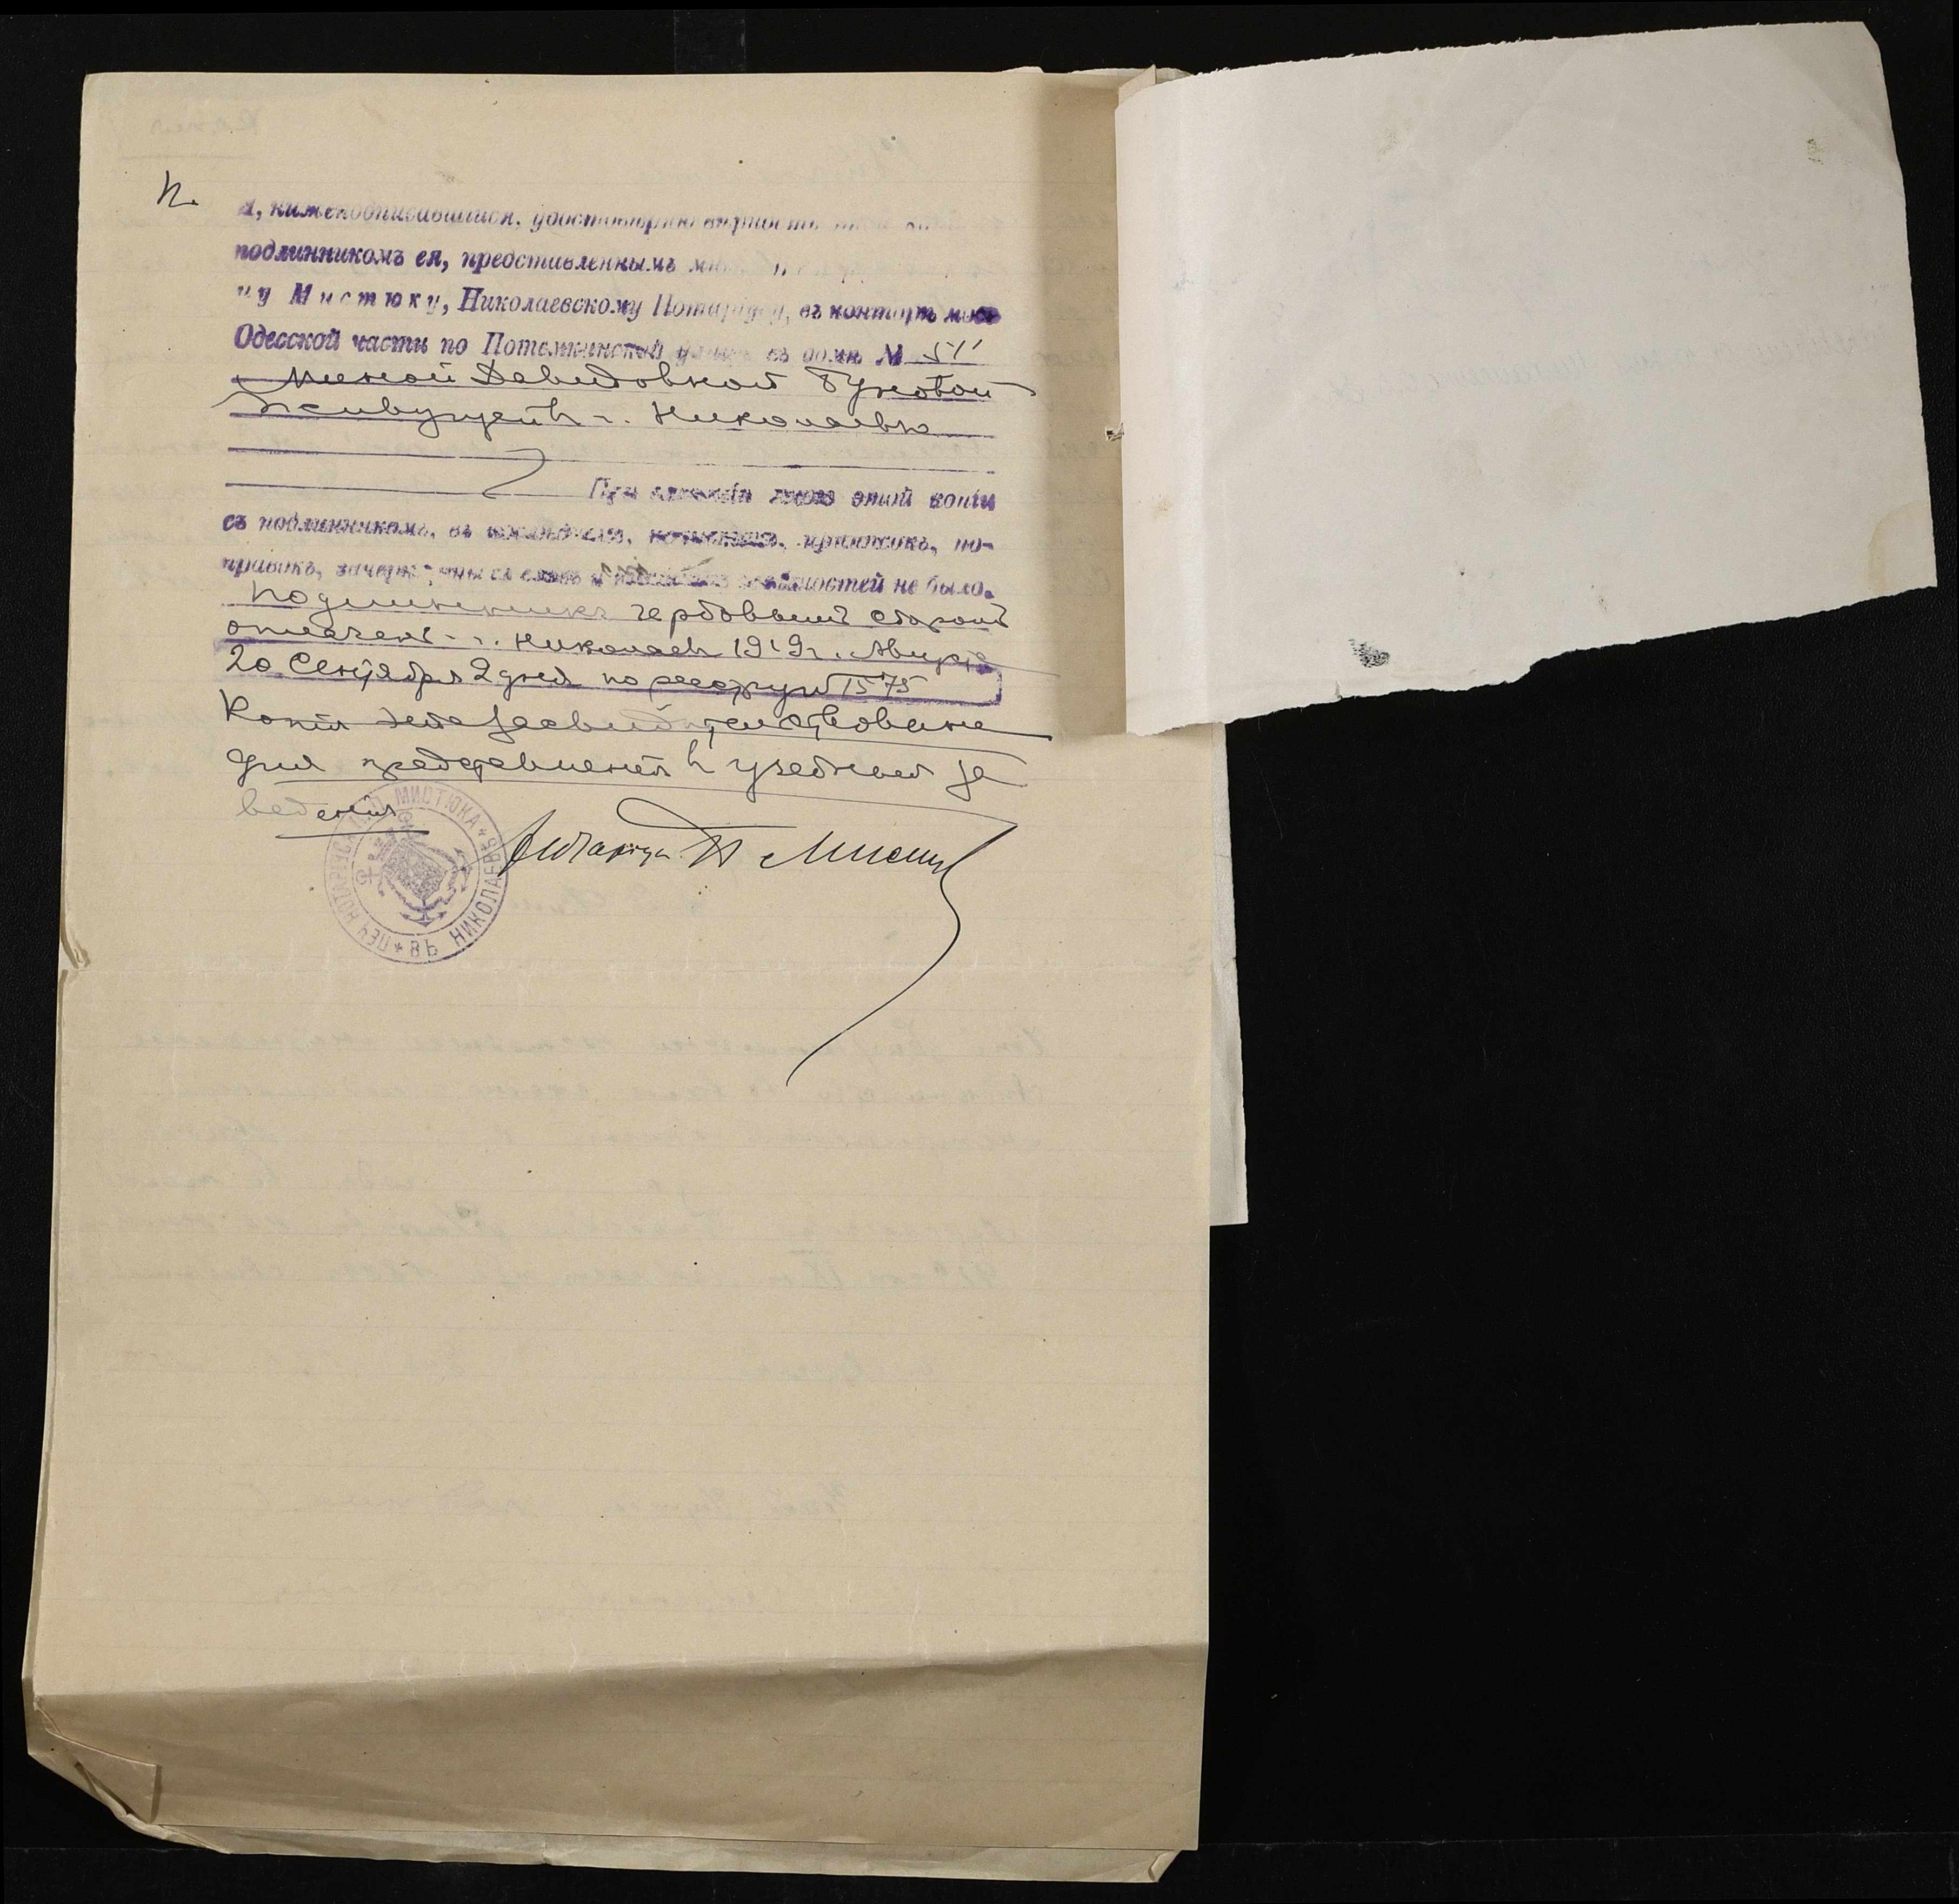 К.
Я, нижеподписавшийся, удостовѣряю вѣрность этой
подлинникомъ ея, представленнымъ мнѣ
цу Мистюку, Николаевскому Нотаріусу, въ конторѣ моей
Одесской части по Потемкинской улицѣ въ домѣ №
Давидовной
живущей в г. Николаевѣ
При сличеніи мною этой копіи
съ подлинникомъ, въ послѣднемъ, почистокъ, приписокъ, по-
правокъ, зачеркнутыхъ словъ и никакихъ особенностей не было.
Подлинникъ гербовым сбором
оплачен г. Николаев 1919 г. Августа
20 Сентября 2 дня по реестру № 1575
Копія эта засвидѣтельствована
для представленія в учебныя за
веденія
Нотаріус П Мистюк
ПЕЧ НОТАРІУСА П. МИСТЮКА * ВЪ НИКОЛАЕВѢ *